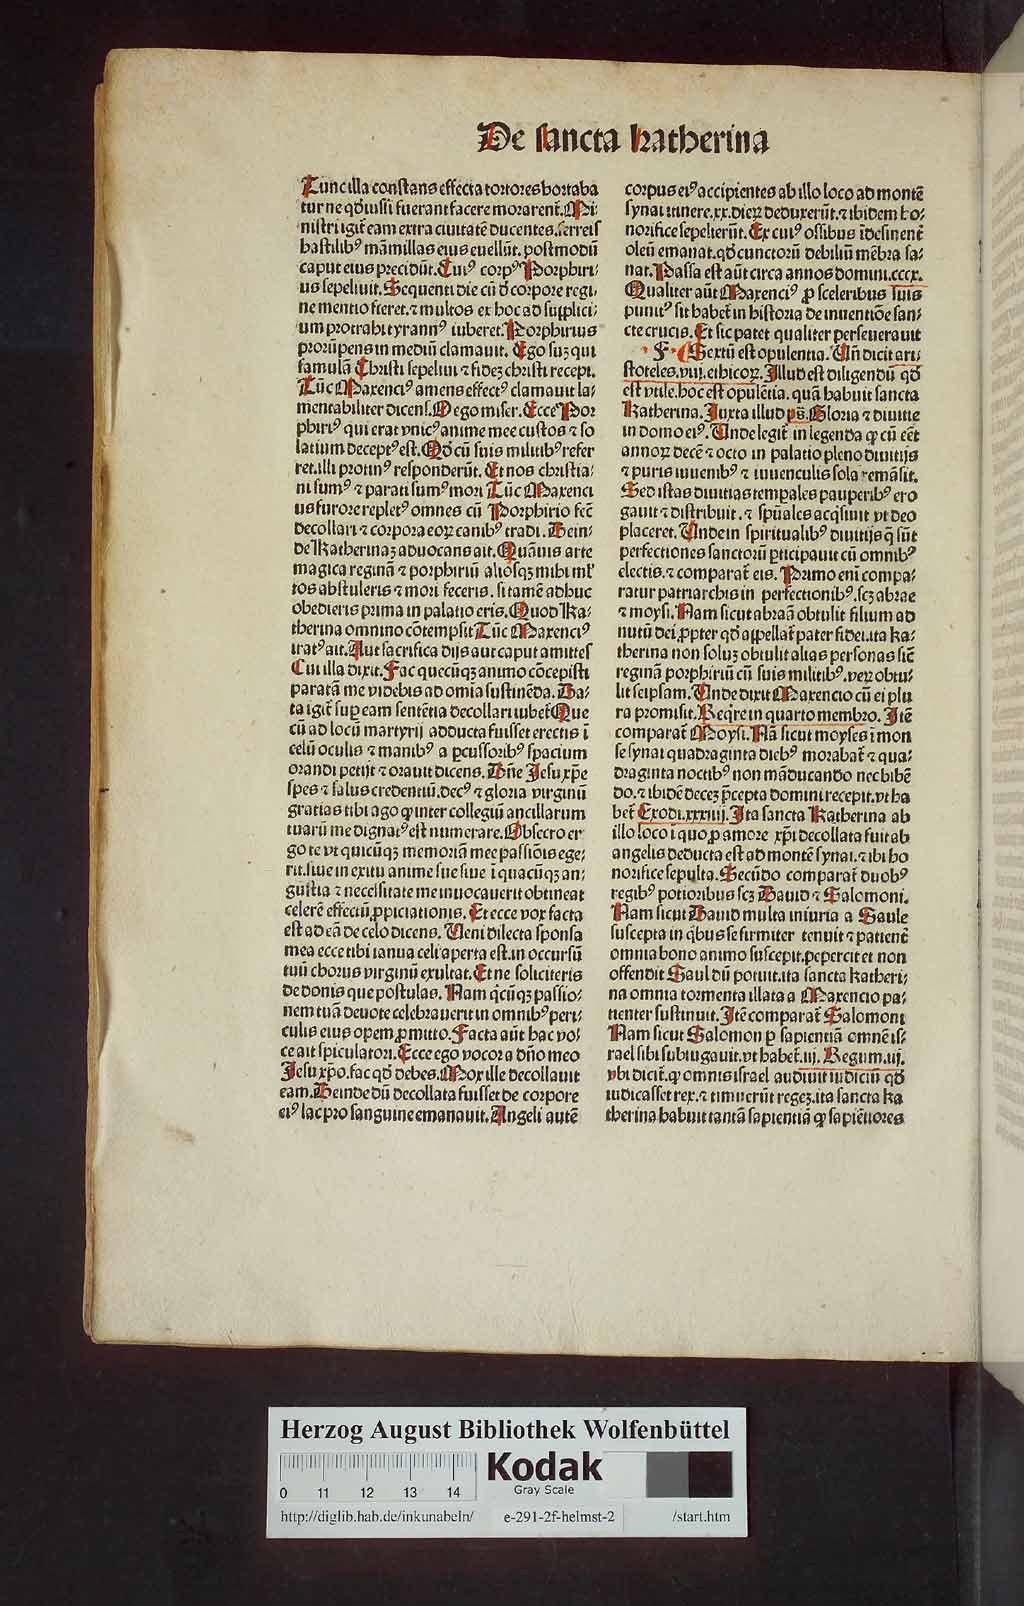 De sancta katherina
Tunc illa constans effecta tortores hortaba
tur ne qđ iussi fuerant facere morarent̃. Mi-
nistri igit̃ eam extra ciuitatē ducentes. ferreis
hastilibꝰ māmillas eius euellūt. postmodū
caput eius precidūt. Cuiꝰ corpꝰ Porphiri-
us sepeliuit. Sequenti die cū đ corpore regi-
ne mentio fieret. ⁊ multos ex hoc ad supplici-
um protrahi tyrannꝰ iuberet. Porphirius
prorūpens in mediū clamauit. Ego suꝫ qui
famulā Christi sepeliui ⁊ fideꝫ christi recepi.
Tūc Maxenciꝰ amens effectꝰ clamauit la-
mentabiliter dicens. O ego miser. Ecce Por
phiriꝰ qui erat vnicꝰ anime mee custos ⁊ so
latium deceptꝰ est. Qđ cū suis militibꝰ refer
ret. illi protinꝰ responderūt. Et nos christia-
ni sumꝰ ⁊ parati sumꝰ mori Tūc Maxenci
us furore repletꝰ omnes cū Porphirio fec̄
decollari ⁊ corpora eoꝝ canibꝰ tradi. Dein-
de Katherinaꝫ aduocans ait. Quāuis arte
magica reginā ⁊ porphiriū aliosqꝫ mihi ml̄
tos abstuleris ⁊ mori feceris. si tamē adhuc
obedieris prima in palatio eris. Quod Ka-
therina omnino cōtempsit Tūc Maxenciꝰ
iratꝰ ait. Aut sacrifica dijs aut caput amittes
Cui illa dixit. Fac quecūqꝫ animo cōcepisti
paratā me videbis ad omia sustinēda. Da-
ta igit̃ suꝑ eam sentētia decollari iubet̃ Que
cū ad locū martyrij adducta fuisset erectis ī
celū oculis ⁊ manibꝰ a ꝑcussoribꝰ spacium
orandi petijt ⁊ orauit dicens. Dñe Jesu xp̄e
spes ⁊ salus credentiū. decꝰ ⁊ gloria virginū
gratias tibi ago ꝙ inter collegiū ancillarum
tuarū me dignatꝰ est numerare. Obsecro er
go te vt quicūqꝫ memoriā mee passiōis ege-
rit. siue in exitu anime sue siue ī quacūqꝫ an-
gustia ⁊ necessitate me inuocauerit obtineat
celerē effectū ꝓpiciationis. Et ecce vox facta
est ad eā de celo dicens. Veni dilecta sponsa
mea ecce tibi ianua celi aperta est. in occursū
tuū chorus virginū exultat. Et ne soliciteris
de donis que postulas. Nam q̃cūqꝫ passio-
nem tuā deuote celebrauerit in omnibꝰ peri-
culis eius opem ꝓmitto. Facta aūt hac vo-
ce ait spiculatori. Ecce ego vocor a dño meo
Jesu xp̄o. fac qđ debes. Mox ille decollauit
eam. Deinde dū decollata fuisset de corpore
eiꝰ lac pro sanguine emanauit. Angeli autē
corpus eiꝰ accipientes ab illo loco ad montē
synai itinere .xx. dieꝝ deduxerūt. ⁊ ibidem ho-
norifice sepelierūt. Ex cuiꝰ ossibus īdesinent̃
oleū emanat. qđ cunctorū debiliū mēbra sa-
nat. Passa est aūt circa annos domini .cccx.
Qualiter aūt Maxenciꝰ ꝓ sceleribus suis
punitꝰ sit habet̃ in historia de inuentiōe san-
cte crucis. Et sic patet qualiter perseuerauit
F. Sextū est opulentia. Vñ dicit ari-
stoteles .viij. ethicoꝝ. Illud est diligendū qđ
est vtile. hoc est opulētia. quā habuit sancta
Katherina. Juxta illud ps̄. Gloria ⁊ diuitie
in domo eiꝰ. Vnde legit̃ in legenda ꝙ cū eēt
annoꝝ decē ⁊ octo in palatio pleno diuitijs
⁊ puris iuuenibꝰ ⁊ iuuenculis sola remāsit.
Sed istas diuitias temꝑales pauperibꝰ ero
gauit ⁊ distribuit. ⁊ spūales acq̃siuit vt deo
placeret. Vnde in spiritualibꝰ diuitijs q̄ sūt
perfectiones sanctorū ꝑticipauit cū omnibꝰ
electis. ⁊ comparat̃ eis. Primo eni compa-
ratur patriarchis in perfectionibꝰ. scꝫ abrae
⁊ moysi. Nam sicut abraā obtulit filium ad
nutū dei ꝓpter qđ appellat̃ pater fidei. ita ka-
therina non soluꝫ obtulit alias personas sic̄
reginā porphiriū cū suis militibꝰ. veꝝ obtu-
lit seipsam. Vnde dixit Maxencio cū ei plu
ra promisit. Req̃re in quarto membro. Itē
comparat̃ Moysi. Nā sicut moyses ī mon
te synai quadraginta diebꝰ morabat̃ ⁊ qua-
draginta noctibꝰ non māducando nec bibē
do. ⁊ ibidē deceꝫ p̄cepta domini recepit. vt ha
bet̃ Exodi .xxxiiij. Ita sancta Katherina ab
illo loco ī quo ꝓ amore xp̄i decollata fuit ab
angelis deducta est ad montē synai. ⁊ ibi ho
norifice sepulta. Secūdo comparat̃ duobꝰ
regibꝰ potioribus scꝫ Dauid ⁊ Salomoni.
Nam sicut Dauid multa iniuria a Saule
suscepta in q̃bus se firmiter tenuit ⁊ patient̃
omnia bono animo suscepit. peꝑcit et non
offendit Saul dū potuit. ita sancta katheri-
na omnia tormenta illata a Maxencio pa-
tienter sustinuit. Itē comparat̃ Salomoni
Nam sicut Salomon ꝑ sapientiā omnē is-
rael sibi subiugauit. vt habet̃ .iij. Regum .iij.
vbi dicit̃. ꝙ omnis israel audiuit iudiciū qđ
iudicasset rex. ⁊ timuerūt regeꝫ. ita sancta ka
therina habuit tantā sapientiā ꝙ sapiētiores
Herzog August Bibliothek Wolfenbüttel
0 11 12 13 14
Kodak
Gray Scale
http://diglib.hab.de/inkunabeln/ e-291-2f-helmst-2 /start.htm